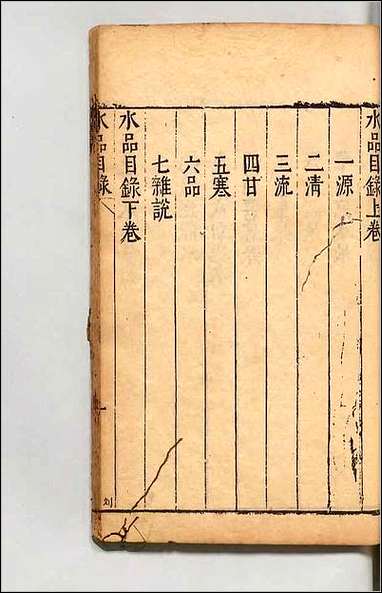 水品目錄上卷
一源
二清
三流
四甘
五寒
六品
七雜說
水品目錄下卷
水品目錄
一